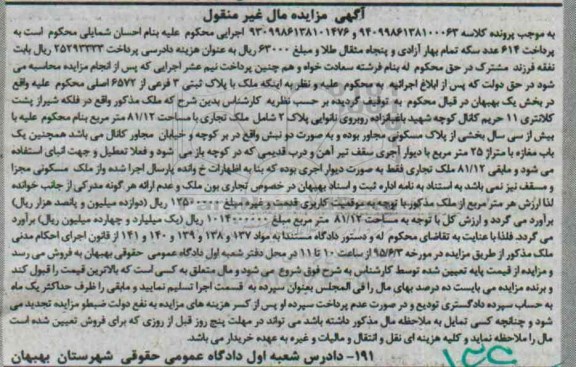 آگهی مزایده مال غیر منقول
به موجب پرونده کلاسه 9409986138100063 و 9309986138101476 اجرایی محکوم علیه بنام احسان شمایلی محکوم است به
پرداخت 614 عدد سکه تمام بهار آزادی و پنجاه مثقال طلا و مبلغ 63000 ریال به عنوان هزینه دادرسی پرداخت 25293333 ریال بابت
نفقه فرزند مشترک در حق محکوم له بنام فرشته سعادت خواه و هم چنین پرداخت نیم عشر اجرایی که پس از انجام مزایده محاسبه می
شود در حق دولت که پس از ابلاغ اجرائیه به محکوم علیه و نظر به اینکه ملک با پلاک ثبتی 3 فرعی از 6572 اصلی محکوم علیه واقع
در بخش یک بهبهان در قبال محکوم به توقیف گردیده بر حسب نظریه کارشناس بدین شرح که ملک مذکور واقع در فلکه شیراز پشت
کلانتری 11 حریم کانال کوچه شهید باغبانزاده روبروی نانوایی پلاک 2 شامل ملک تجاری با مساحت 81/12 متر مربع بنام محکوم علیه با
بیش از سی سال بخشی از پلاک مسکونی مجاور بوده و به صورت دو نبش واقع در بر کوچه و خیابان مجاور کانال می باشد همچنین یک
باب مغازه با متراژ 25 متر مربع با دیوار آجری سقف تیر آهن و درب قدیمی که در کوچه باز می شود و فعلا تعطیل و جهت انبای استفاده
می شود و مابقی 81/12 ملک تجاری فقط به صورت دیوار آجری بوده که بنا به اظهارات خوانده پارسال اجرا شده واز ملک مسکونی مجزا
و مسقف نیز نمی باشد به استناد به نامه اداره ثبت و اسناد بهبهان در خصوص تجاری بون ملک و عدم ارائه هر گونه مدرکی از جانب خوانده
لذا ارزش هر متر مربع از ملک مذکور با توجه به موقعیت کاربری قدمت و غیره مبلغ 12500000 ریال (دوازده میلیون و پانصد هزار ریال)
برآورد می گردد و ارزش کل با توجه به مساحت 81/12 متر مربع مبلغ 1014000000 ریال (یک میلیارد و چهارده میلیون ریال) برآورد
می گردد. فلذا با عنایت به تقاضای محکوم له و دستور دادگاه مستندا به مواد 137 و 138 و 139 و 140 و 141 از قانون اجرای احکام مدنی
ملک مذکور از طریق مزایده در مورخه 95/6/3 از ساعت 10 تا 11 در محل دفتر شعبه اول دادگاه عمومی حقوقی بهبهان به فروش می رسد
و مزایده از قیمت پایه تعیین شده توسط کارشناس به شرح فوق شروع می شود و مال متعلق به کسی است که بالاترین قیمت را قبول کند
و برنده مزایده می بایست ده درصد بهای مال را فی المجلس بعنوان سپرده به قسمت اجرا تسلیم نمایید و مابقی را ظرف حداکثر یک ماه
به حساب سپرده دادگستری تودیع و در صورت عدم پرداخت سپرده او پس از کسر هزینه های مزایده به نفع دولت ضبطو مزایده تجدید می
شود و چنانچه کسی تمایل به ملاحظه مال مذکور داشته باشد می تواند در مهلت پنج روز قبل از روزی که برای فروش تعیین شده است
مال را ملاحظه نماید و کلیه هزینه ای نقل و انتقال و مالیات و غیره به عهده خریدار می باشد.
191- دادرس شعبه اول دادگاه عمومی حقوقی شهرستان بهبهان